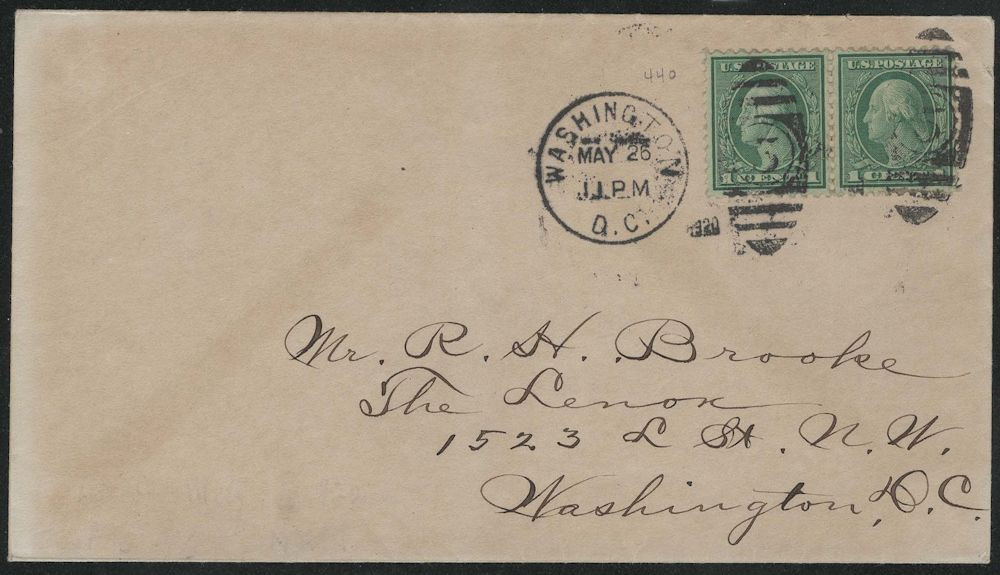 U.S. POSTAGE U.S. POSTAGE
440
WASHINGTON
MAY 26
11 PM
D.C.
1920
1 CENT 1 1 CENT
Mr. R. H. Brooke
The Lenox
1523 L St. N. W.
Washington, D. C.